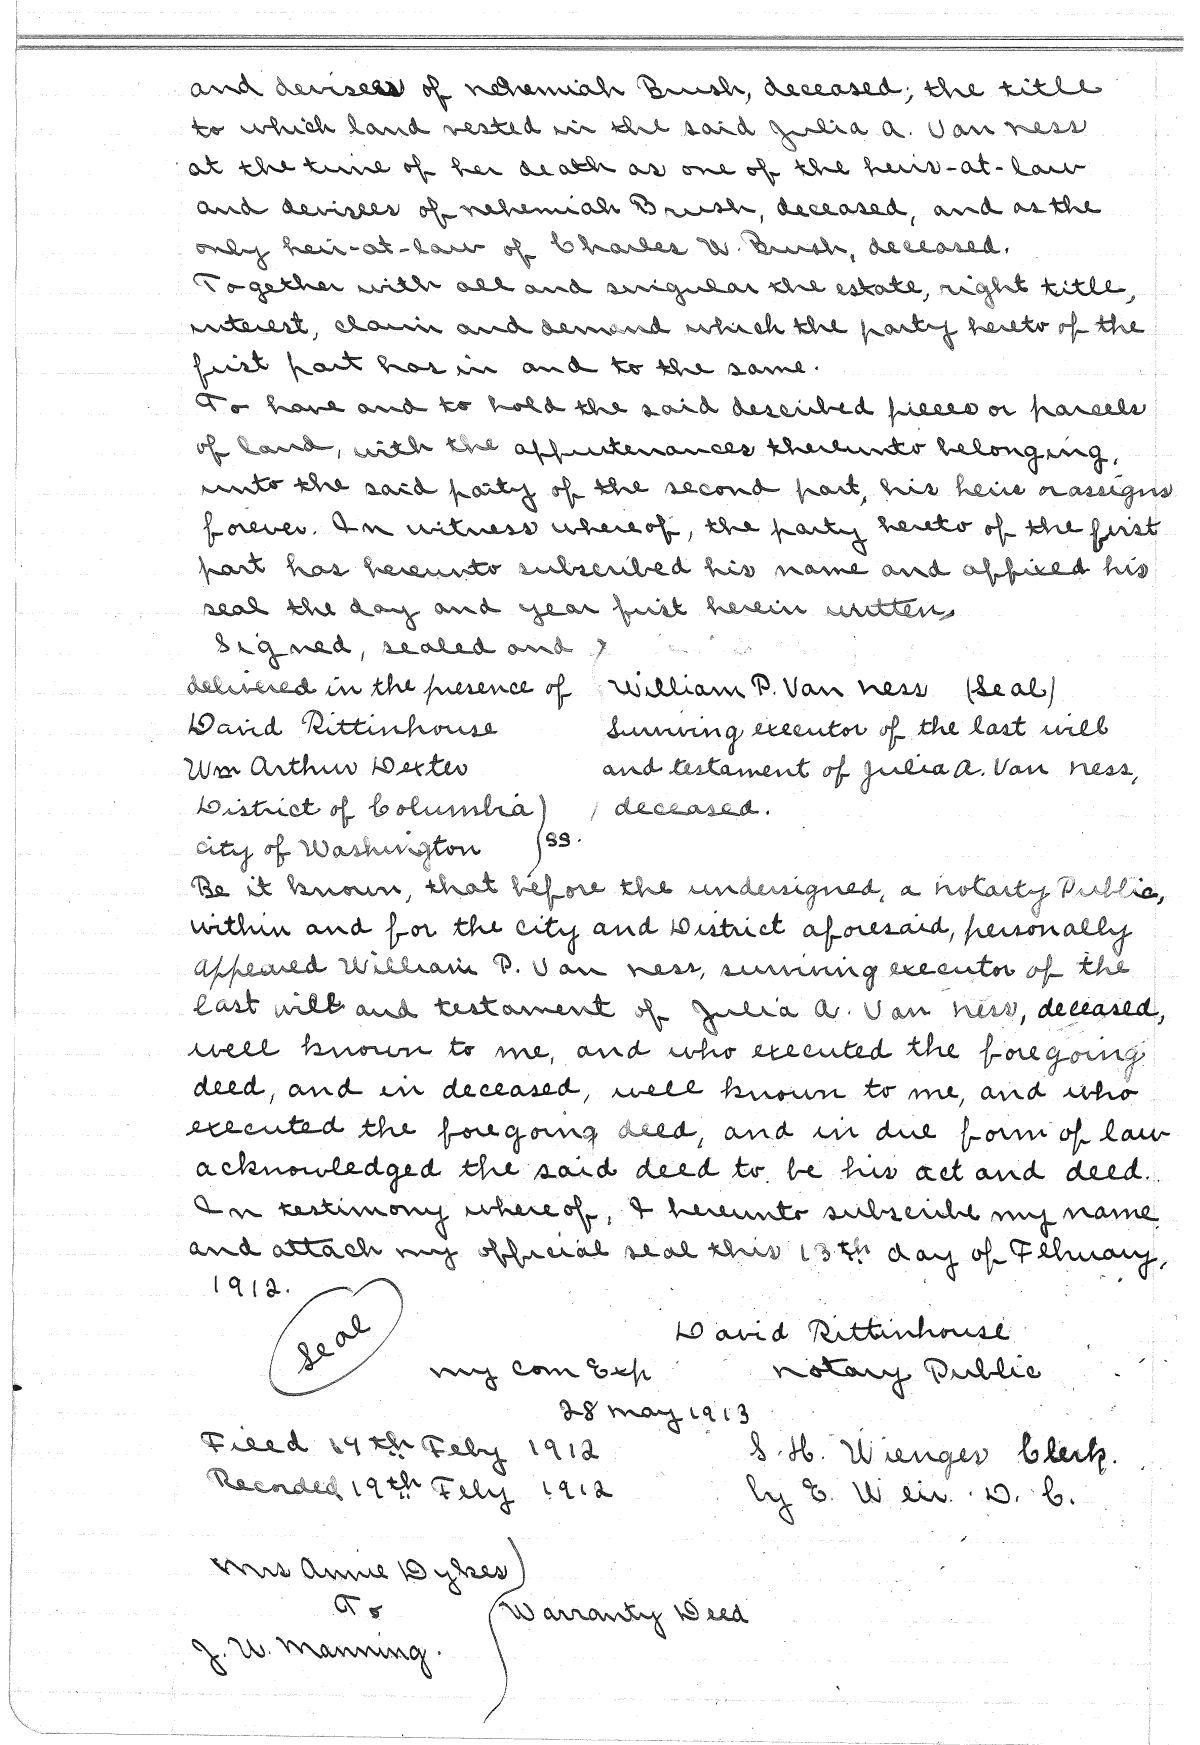 and devisees of Nehemiah Brush, deceased; the title
to which land vested in the said Julia A. Van Ness
at the time of her death as one of the heirs-at-law
and devisees of Nehemiah Brush, deceased, and as the
only heir-at-law of Charles W. Brush, deceased.
Together with all and singular the estate, right title,
interest, claim and demand which the party hereto of the
first part has in and to the same.
To have and to hold the said described pieces or parcels
of land, with the appurtenances thereunto belonging,
unto the said party of the second part, his heirs or assigns
forever. In witness whereof, the party hereto of the first
part has hereunto subscribed his name and affixed his
seal the day and year first herein written.
Signed, sealed and )
delivered in the presence of William P. Van Ness (Seal)
David Rittinhouse Surviving executor of the last will
Wm Arthur Dexter and testament of Julia A. Van Ness,
District of Columbia ) deceased.
City of Washington ) ss.
Be it known, that before the undersigned, a Notary Public,
within and for the City and District aforesaid, personally
appeared William P. Van Ness, surviving executor of the
last will and testament of Julia A. Van Ness, deceased,
well known to me, and who executed the foregoing
deed, and in deceased, well known to me, and who
executed the foregoing deed, and in due form of law
acknowledged the said deed to be his act and deed.
In testimony whereof, I hereunto subscribe my name
and attach my official seal this 13th day of February,
1912.
Seal
David Rittinhouse
my com Exp Notary Public
28 May 1913
Filed 19th Feby 1912 S. H. Wienges Clerk.
Recorded 19th Feby 1912 by E. Weir D. C.
Mrs Annie Dykes )
To ) Warranty Deed
J. W. Manning.